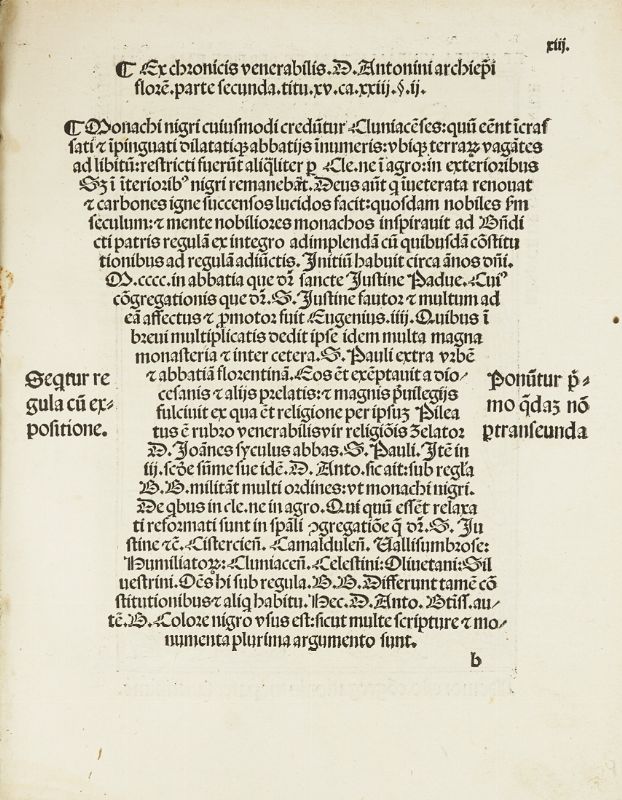 xiij.
¶ Ex chronicis venerabilis.D.Antonini archiep̄i
florē.parte secunda.titu.xv.ca.xxiij.§.ij.
¶ Monachi nigri cuiusmodi credūtur Cluniacēses:quū eēnt īcras
sati ⁊ īpinguati dilatatiqꝫ abbatijs īnumeris:vbiqꝫ terraꝝ vagātes
ad libitū:restricti fuerūt aliqliter ꝑ Cle.ne ī agro:in exterioribus
Sꝫ ī īterioribꝰ nigri remanebāt.Deus aūt q īueterata renouat
⁊ carbones igne succensos lucidos facit:quosdam nobiles ſm
seculum:⁊ mente nobiliores monachos inspirauit ad Bn̄di
cti patris regulā ex integro adimplendā cū quibusdā cōstitu
tionibus ad regulā adiūctis. Initiū habuit circa ānos dn̄i.
M.cccc.in abbatia que dr̄ sancte Justine Padue.Cuiꝰ
cōgregationis que dr̄.S.Justine fautor ⁊ multum ad
eā affectus ⁊ ꝓmotor fuit Eugenius.iiij.Quibus ī
breui multiplicatis dedit ipse idem multa magna
monasteria ⁊ inter cetera.S.Pauli extra vrbē
⁊ abbatiā florentinā.Eos ēt exēptauit a dio⸗
cesanis ⁊ alijs prelatis:⁊ magnis p̄uilegijs
fulciuit ex qua ēt religione per ipsuꝫ Pilea
tus ē rubro venerabilis vir religiōis zelator
D.Joānes syculus abbas.S.Pauli.Itē in
iij.scōe sūme sue idē.D.Anto.sic ait:sub regl̄a
B.B.militāt multi ordines:vt monachi nigri.
De qbus in cle.ne in agro.Qui quū essēt relaxa
ti reformati sunt in sp̄ali ꝯgregatiōe q̄ dr̄.S.Ju
stine ⁊c̄.Cistercien̄.Camaldulen̄.Uallisumbrose:
Humiliatoꝝ:Cluniacen̄.Celestini:Oliuetani:Sil
uestrini.Oēs hi sub regula.B.B.Differunt tamē cō
stitutionibus ⁊ aliq habitu.Hec.D.Anto.Btiss.au⸗
tē.B.Colore nigro vsus est:sicut multe scripture ⁊ mo⸗
numenta plurima argumento sunt.
Seqtur re
gula cū ex⸗
positione.
Ponūtur p̄⸗
mo q̄daꝫ nō
ꝑtranseunda
b